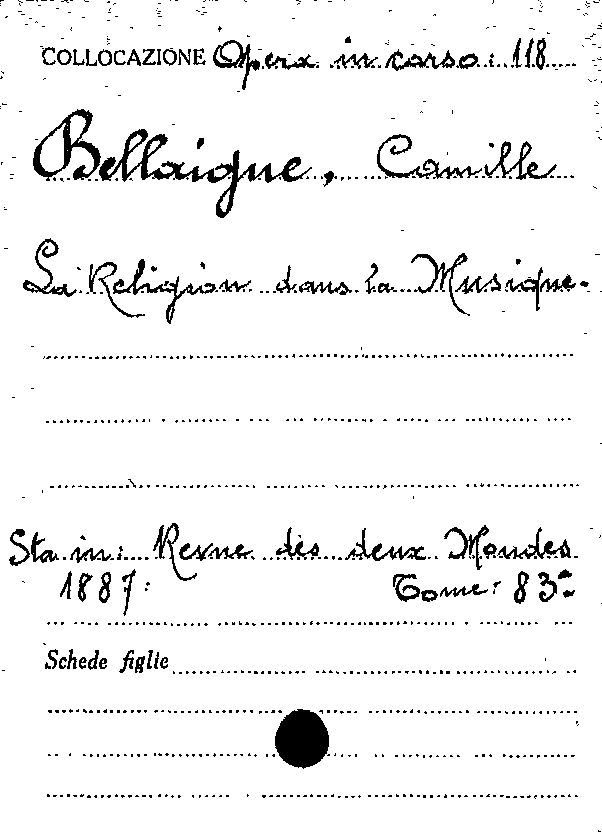 COLLOCAZIONE Opera in corso: 118
Bellaigue, Camille
La Religion dans la Musique.
Sta in: Revue des deux Mondes
1887: Tome: 83º
Schede figlie